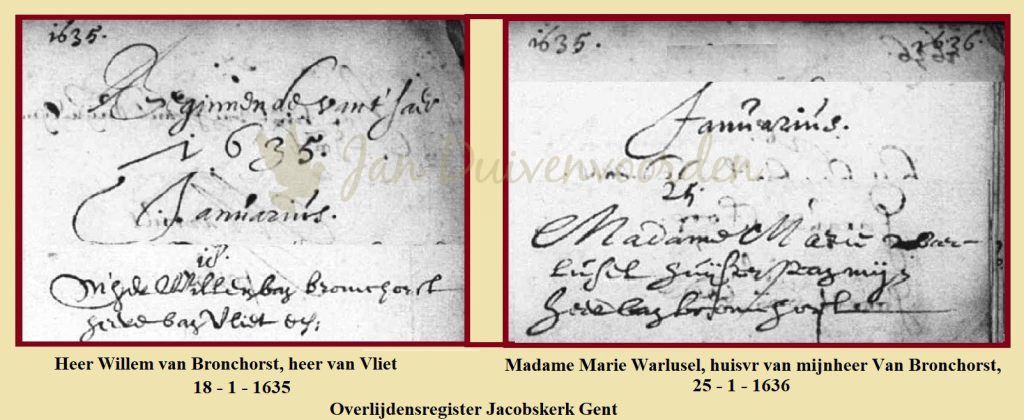 1635.
Beginnende van't Jaer
1635.
Januarius.
18.
Mijnhr Willem van Bronchorst
heere van Vliet etc:
1635.
1636.
Januarius.
25.
Madame Marie War-
lusel huijsvr van mijn
heere van bronchorst
Jan Duivenvoorden
Heer Willem van Bronchorst, heer van Vliet
18 - 1 - 1635
Madame Marie Warlusel, huisvr van mijnheer Van Bronchorst,
25 - 1 - 1636
Overlijdensregister Jacobskerk Gent